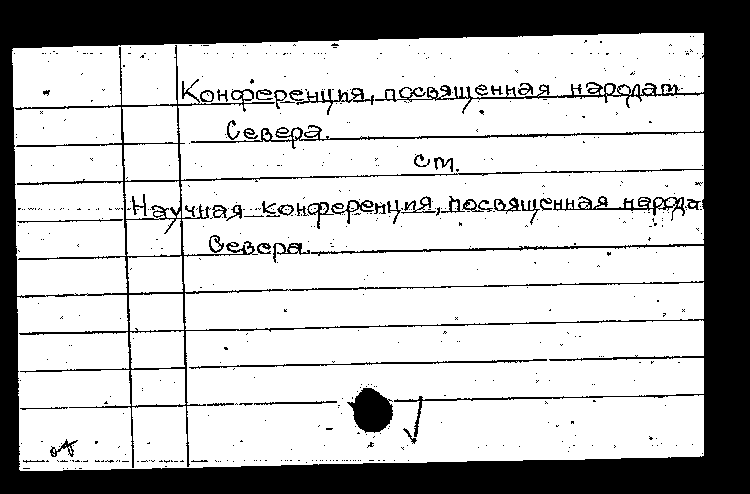 Конференция, посвященная народам
Севера.
см.
Научная конференция, посвященная народа
Севера.